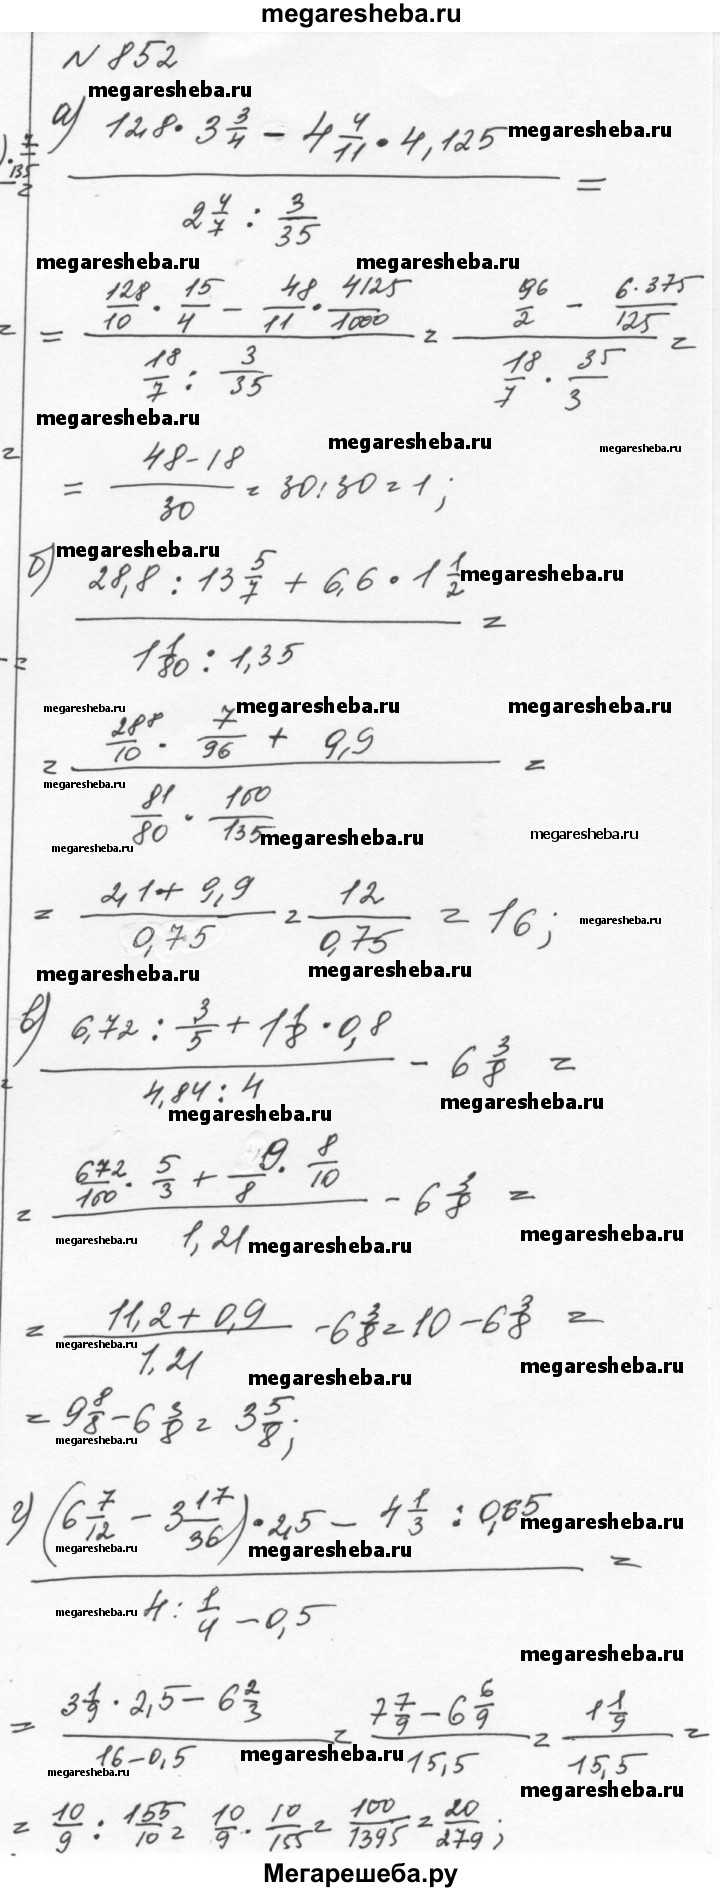 megaresheba.ru
N 852
megaresheba.ru
а) (12,8 · 3 3/4 − 4 4/11 · 4,125) / (2 4/7 : 3/35) =
megaresheba.ru
megaresheba.ru megaresheba.ru
= (128/10 · 15/4 − 48/11 · 4125/1000) / (18/7 : 3/35) = (96/2 − 6·375/125) / (18/7 · 35/3) =
megaresheba.ru megaresheba.ru megaresheba.ru
= (48−18)/30 = 30:30 = 1;
megaresheba.ru
б) (28,8 : 13 5/7 + 6,6 · 1 1/2) / (1 1/80 : 1,35) =
megaresheba.ru
megaresheba.ru megaresheba.ru megaresheba.ru
= (288/10 · 7/96 + 9,9) / (81/80 · 100/135) =
megaresheba.ru
megaresheba.ru megaresheba.ru megaresheba.ru
= (2,1+9,9)/0,75 = 12/0,75 = 16;
megaresheba.ru
megaresheba.ru megaresheba.ru
в) (6,72 : 3/5 + 1 1/8 · 0,8) / (4,84 : 4) − 6 3/8 =
megaresheba.ru megaresheba.ru
= (672/100 · 5/3 + 9/8 · 8/10) / 1,21 − 6 3/8 =
megaresheba.ru megaresheba.ru megaresheba.ru
= (11,2+0,9)/1,21 − 6 3/8 = 10 − 6 3/8 =
megaresheba.ru megaresheba.ru megaresheba.ru
= 9 8/8 − 6 3/8 = 3 5/8;
megaresheba.ru
г) ((6 7/12 − 3 17/36) · 2,5 − 4 1/3 : 0,65) / (4 : 1/4 − 0,5) =
megaresheba.ru
megaresheba.ru megaresheba.ru
megaresheba.ru
megaresheba.ru
= (3 1/9 · 2,5 − 6 2/3) / (16−0,5) = (7 7/9 − 6 6/9) / 15,5 = (1 1/9) / 15,5 =
megaresheba.ru megaresheba.ru megaresheba.ru
= 10/9 : 155/10 = 10/9 · 10/155 = 100/1395 = 20/279;
Мегарешеба.ру